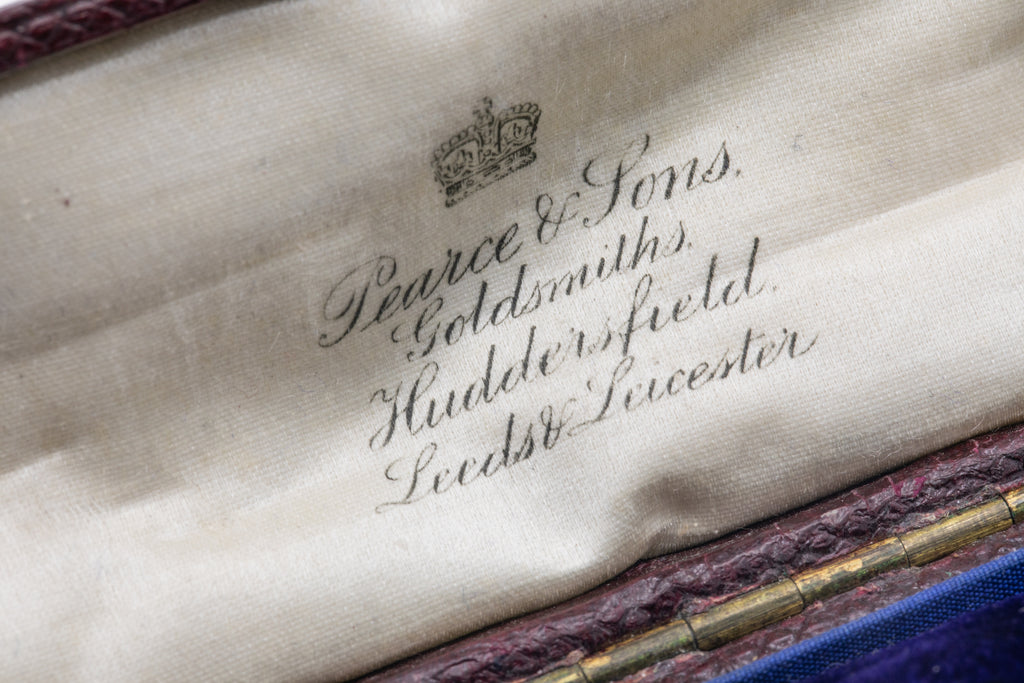 Pearce & Sons.
Goldsmiths.
Huddersfield.
Leeds & Leicester